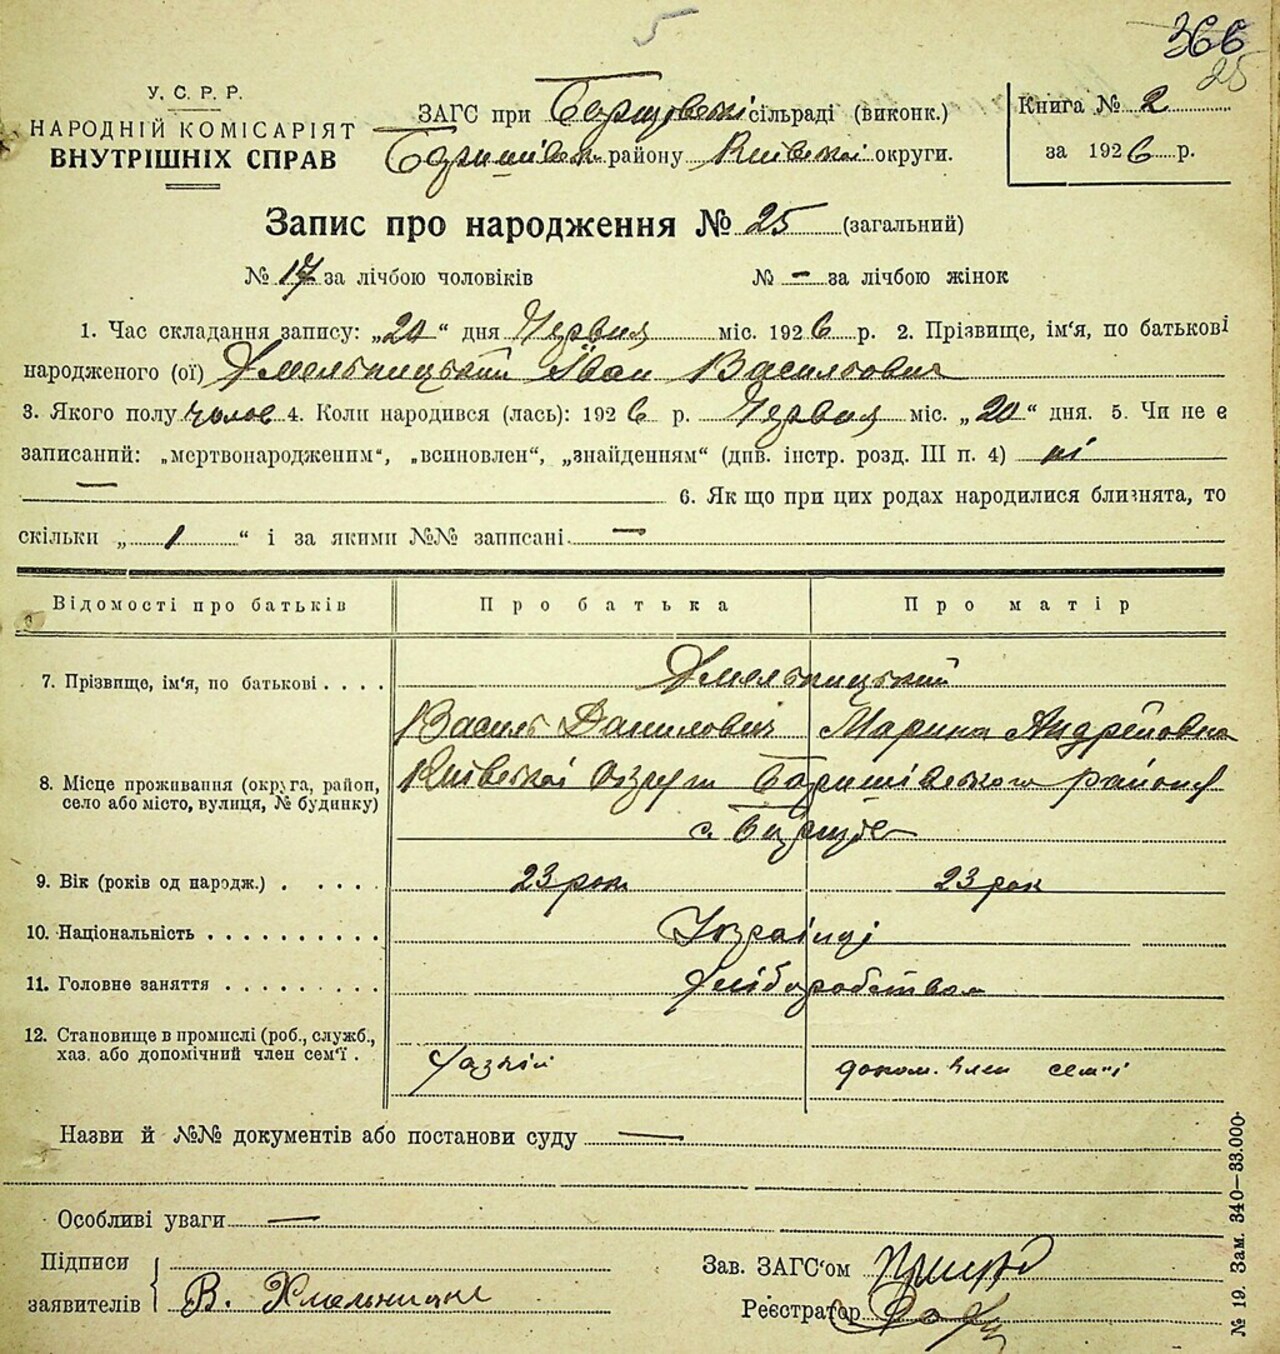 366
25
У. С. Р. Р.
НАРОДНІЙ КОМІСАРІЯТ
ВНУТРІШНІХ СПРАВ
ЗАГС при сільраді (виконк.)
району Київскої округи.
Книга № 2
за 1926 р.
Запис про народження № 25 (загальний)
№ 17 за лічбою чоловіків № — за лічбою жінок
1. Час складання запису: „20“ дня Червня міс. 1926 р. 2. Прізвище, ім'я, по батькові
народженого (ої) Хмельницький Іван Васильович
3. Якого полу чолов 4. Коли народився (лась): 1926 р. Червня міс. „20“ дня. 5. Чи не є
записаний: „мертвонародженим“, „всиновлен“, „знайденням“ (див. інстр. розд. III п. 4) ні
— 6. Як що при цих родах народилися близнята, то
скільки „1“ і за якими №№ записані —
Відомості про батьків Про батька Про матір
7. Прізвище, ім'я, по батькові . . . . Хмельницький
Василь Данилович Марина Андрейовна
8. Місце проживання (округа, район,
село або місто, вулиця, № будинку)
Київскої Округи Баришівського району
с.
9. Вік (років од народж.) . . . . . 23 рок 23 рок
10. Національність . . . . . . . . . . Українці
11. Головне заняття . . . . . . . . . Хліборобством
12. Становище в промислі (роб., служб.,
хаз. або допомічний член сем'ї .
Хазяїн допом. член сем'ї
Назви й №№ документів або постанови суду —
Особливі уваги —
Підписи
заявителів В.
Зав. ЗАГС'ом
Реєстратор
№ 19. Зам. 340—33.000.